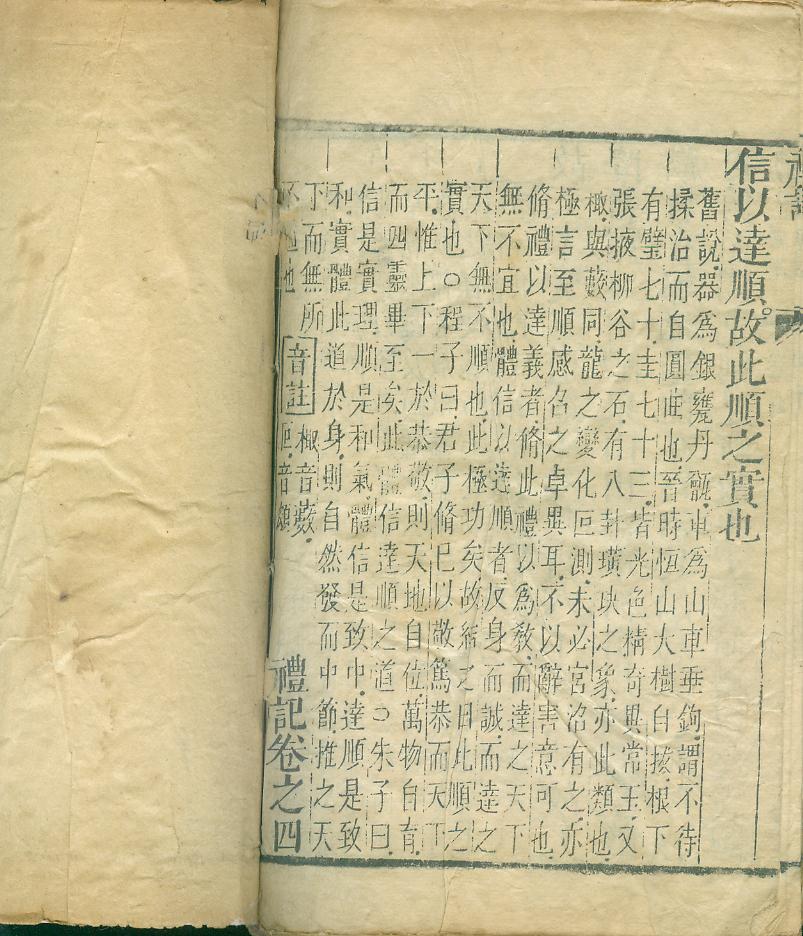 禮記
信以達順故此順之實也
舊說器為銀甕丹甑車為山車垂鉤謂不待
揉治而自圓曲也晉時恒山大樹自拔根下
有璧七十圭七十三皆光色精奇異常玉又
張掖柳谷之石有八卦璜玦之象亦此類也
棷與藪同龍之變化叵測未必宮沼有之亦
極言至順感召之卓異耳不以辭害意可也
脩禮以達義者脩此禮以為教而達之天下
無不宜也體信以達順者反身而誠而達之
天下無不順也此極功矣故結之曰此順之
實也○程子曰君子脩已以敬篤恭而天下
平惟上下一於恭敬則天地自位萬物自育
而四靈畢至矣此體信達順之道○朱子曰
信是實理順是和氣體信是致中達順是致
和實體此道於身則自然發而中節推之天
下而無所
不通也
音註
棷音藪
叵音頗
禮記卷之四